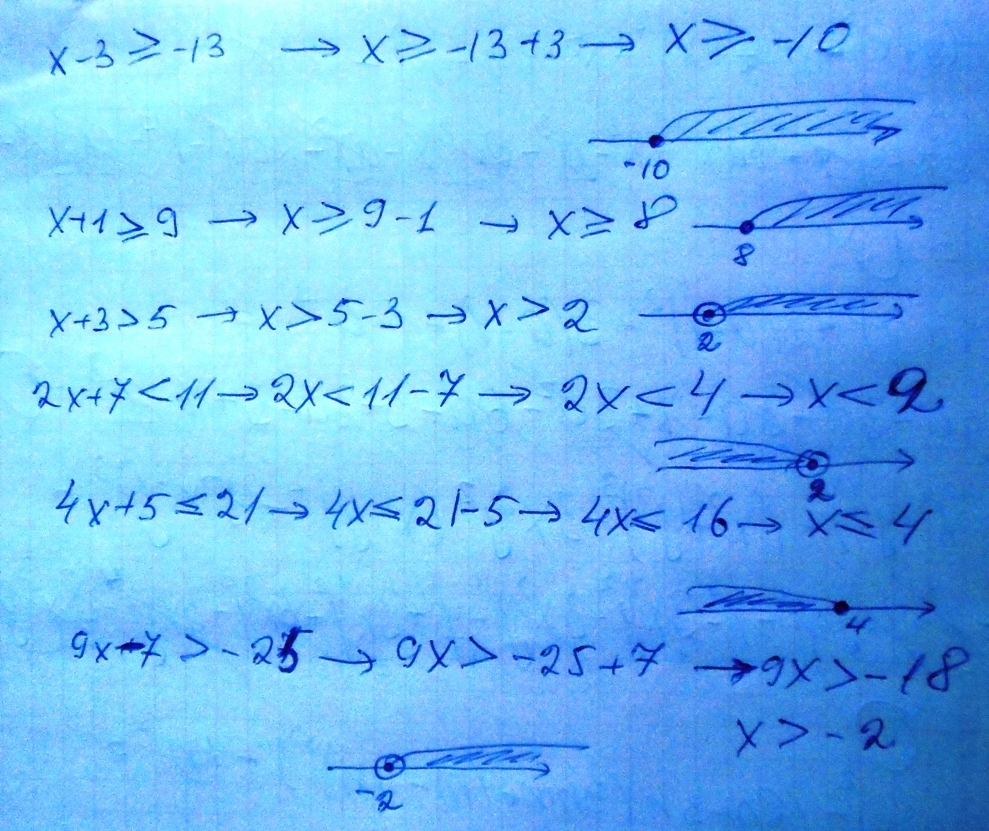 x-3 ≥ -13 → x ≥ -13+3 → x ≥ -10
-10
x+1 ≥ 9 → x ≥ 9-1 → x ≥ 8
8
x+3 > 5 → x > 5-3 → x > 2
2
2x+7 < 11 → 2x < 11-7 → 2x < 4 → x < 2
2
4x+5 ≤ 21 → 4x ≤ 21-5 → 4x ≤ 16 → x ≤ 4
4
9x-7 > -25 → 9x > -25+7 → 9x > -18
x > -2
-2